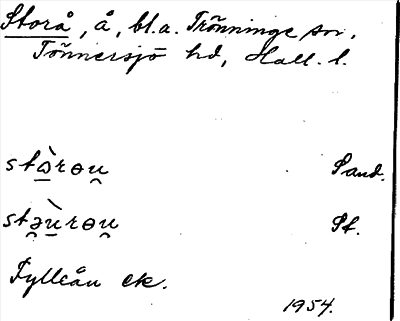 Storå, å, bl.a. Trönninge sn.
Tönnersjö hd, Hall. l.
stɔ̀rɵu̯ Sand.
stə̯ùrɵu̯ St.
Fylleån ek.
1954.